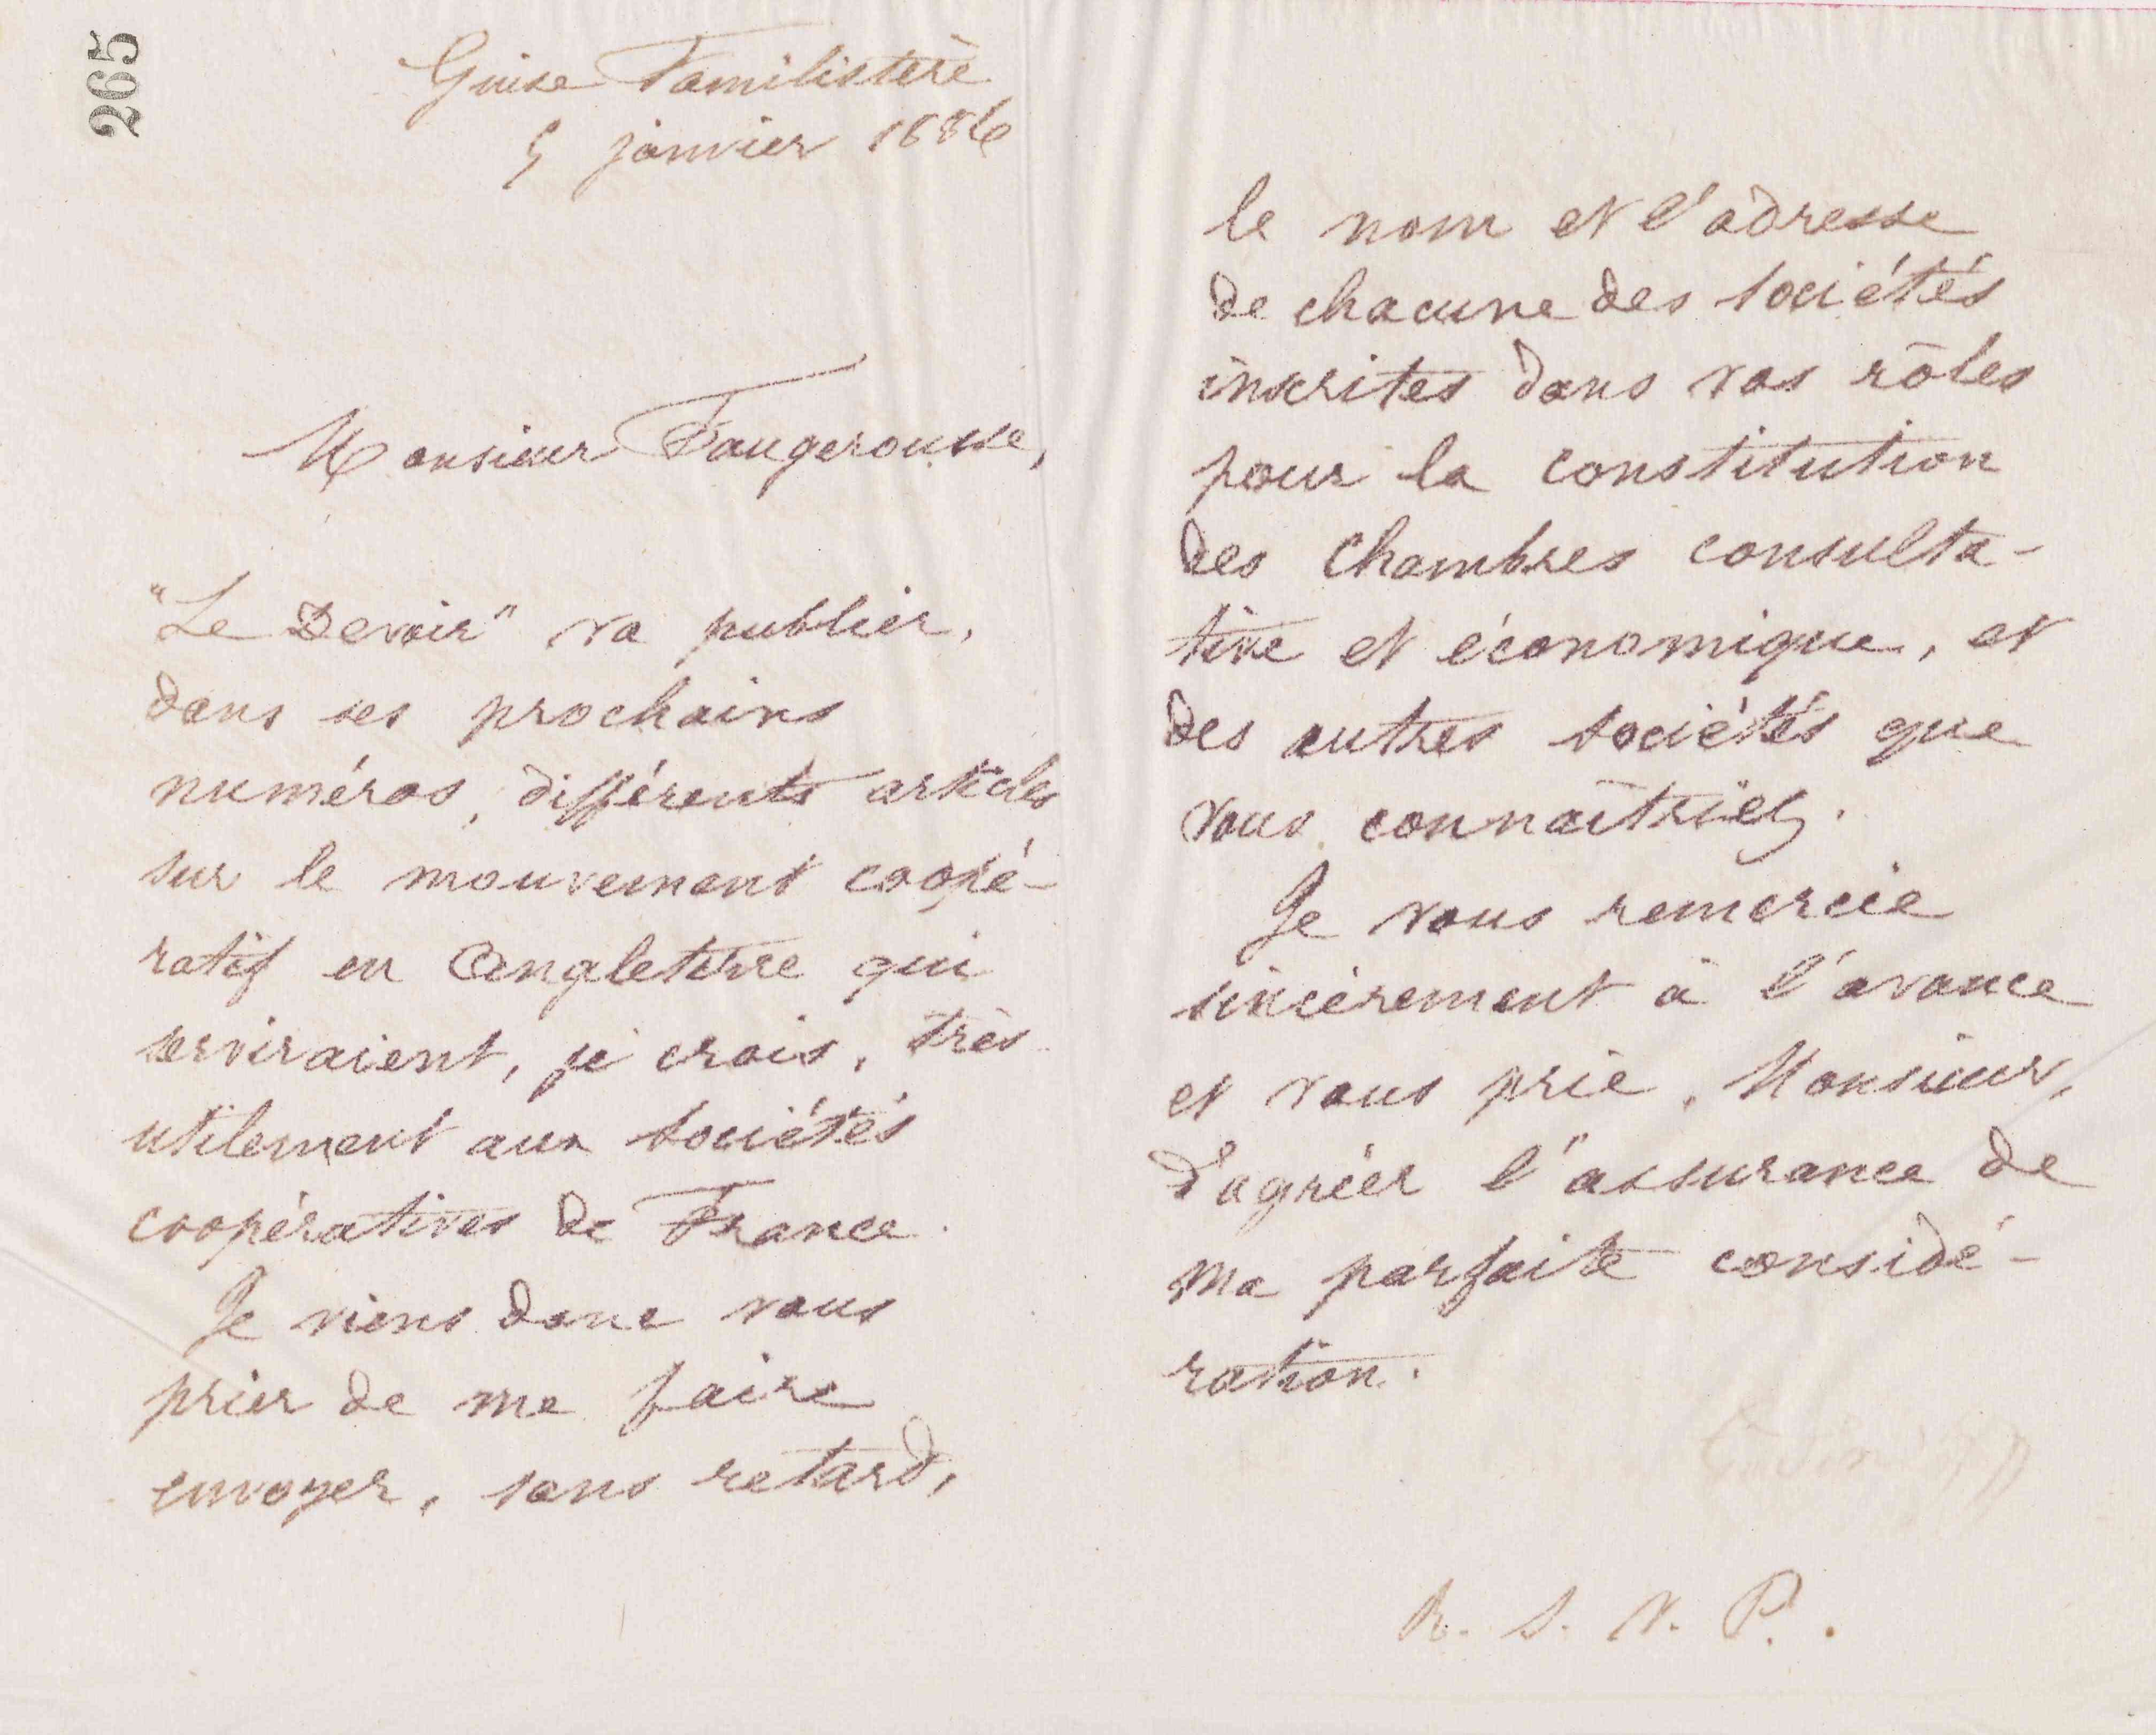 265
Guise Familistère
5 janvier 1886
Monsieur Faugerousse,
"Le Devoir" va publier,
dans ses prochains
numéros, différents articles
sur le mouvement coopé-
ratif en Angleterre qui
serviraient, je crois, très
utilement aux sociétés
coopératives de France.
Je viens donc vous
prier de me faire
envoyer, sans retard,
le nom et l'adresse
de chacune des sociétés
inscrites dans vos rôles
pour la constitution
des Chambres consulta-
tive et économique, et
des autres sociétés que
vous connaîtriez.
Je vous remercie
sincèrement à l'avance
et vous prie, Monsieur,
d'agréer l'assurance de
ma parfaite considé-
ration.
Godin
R. S. V. P.